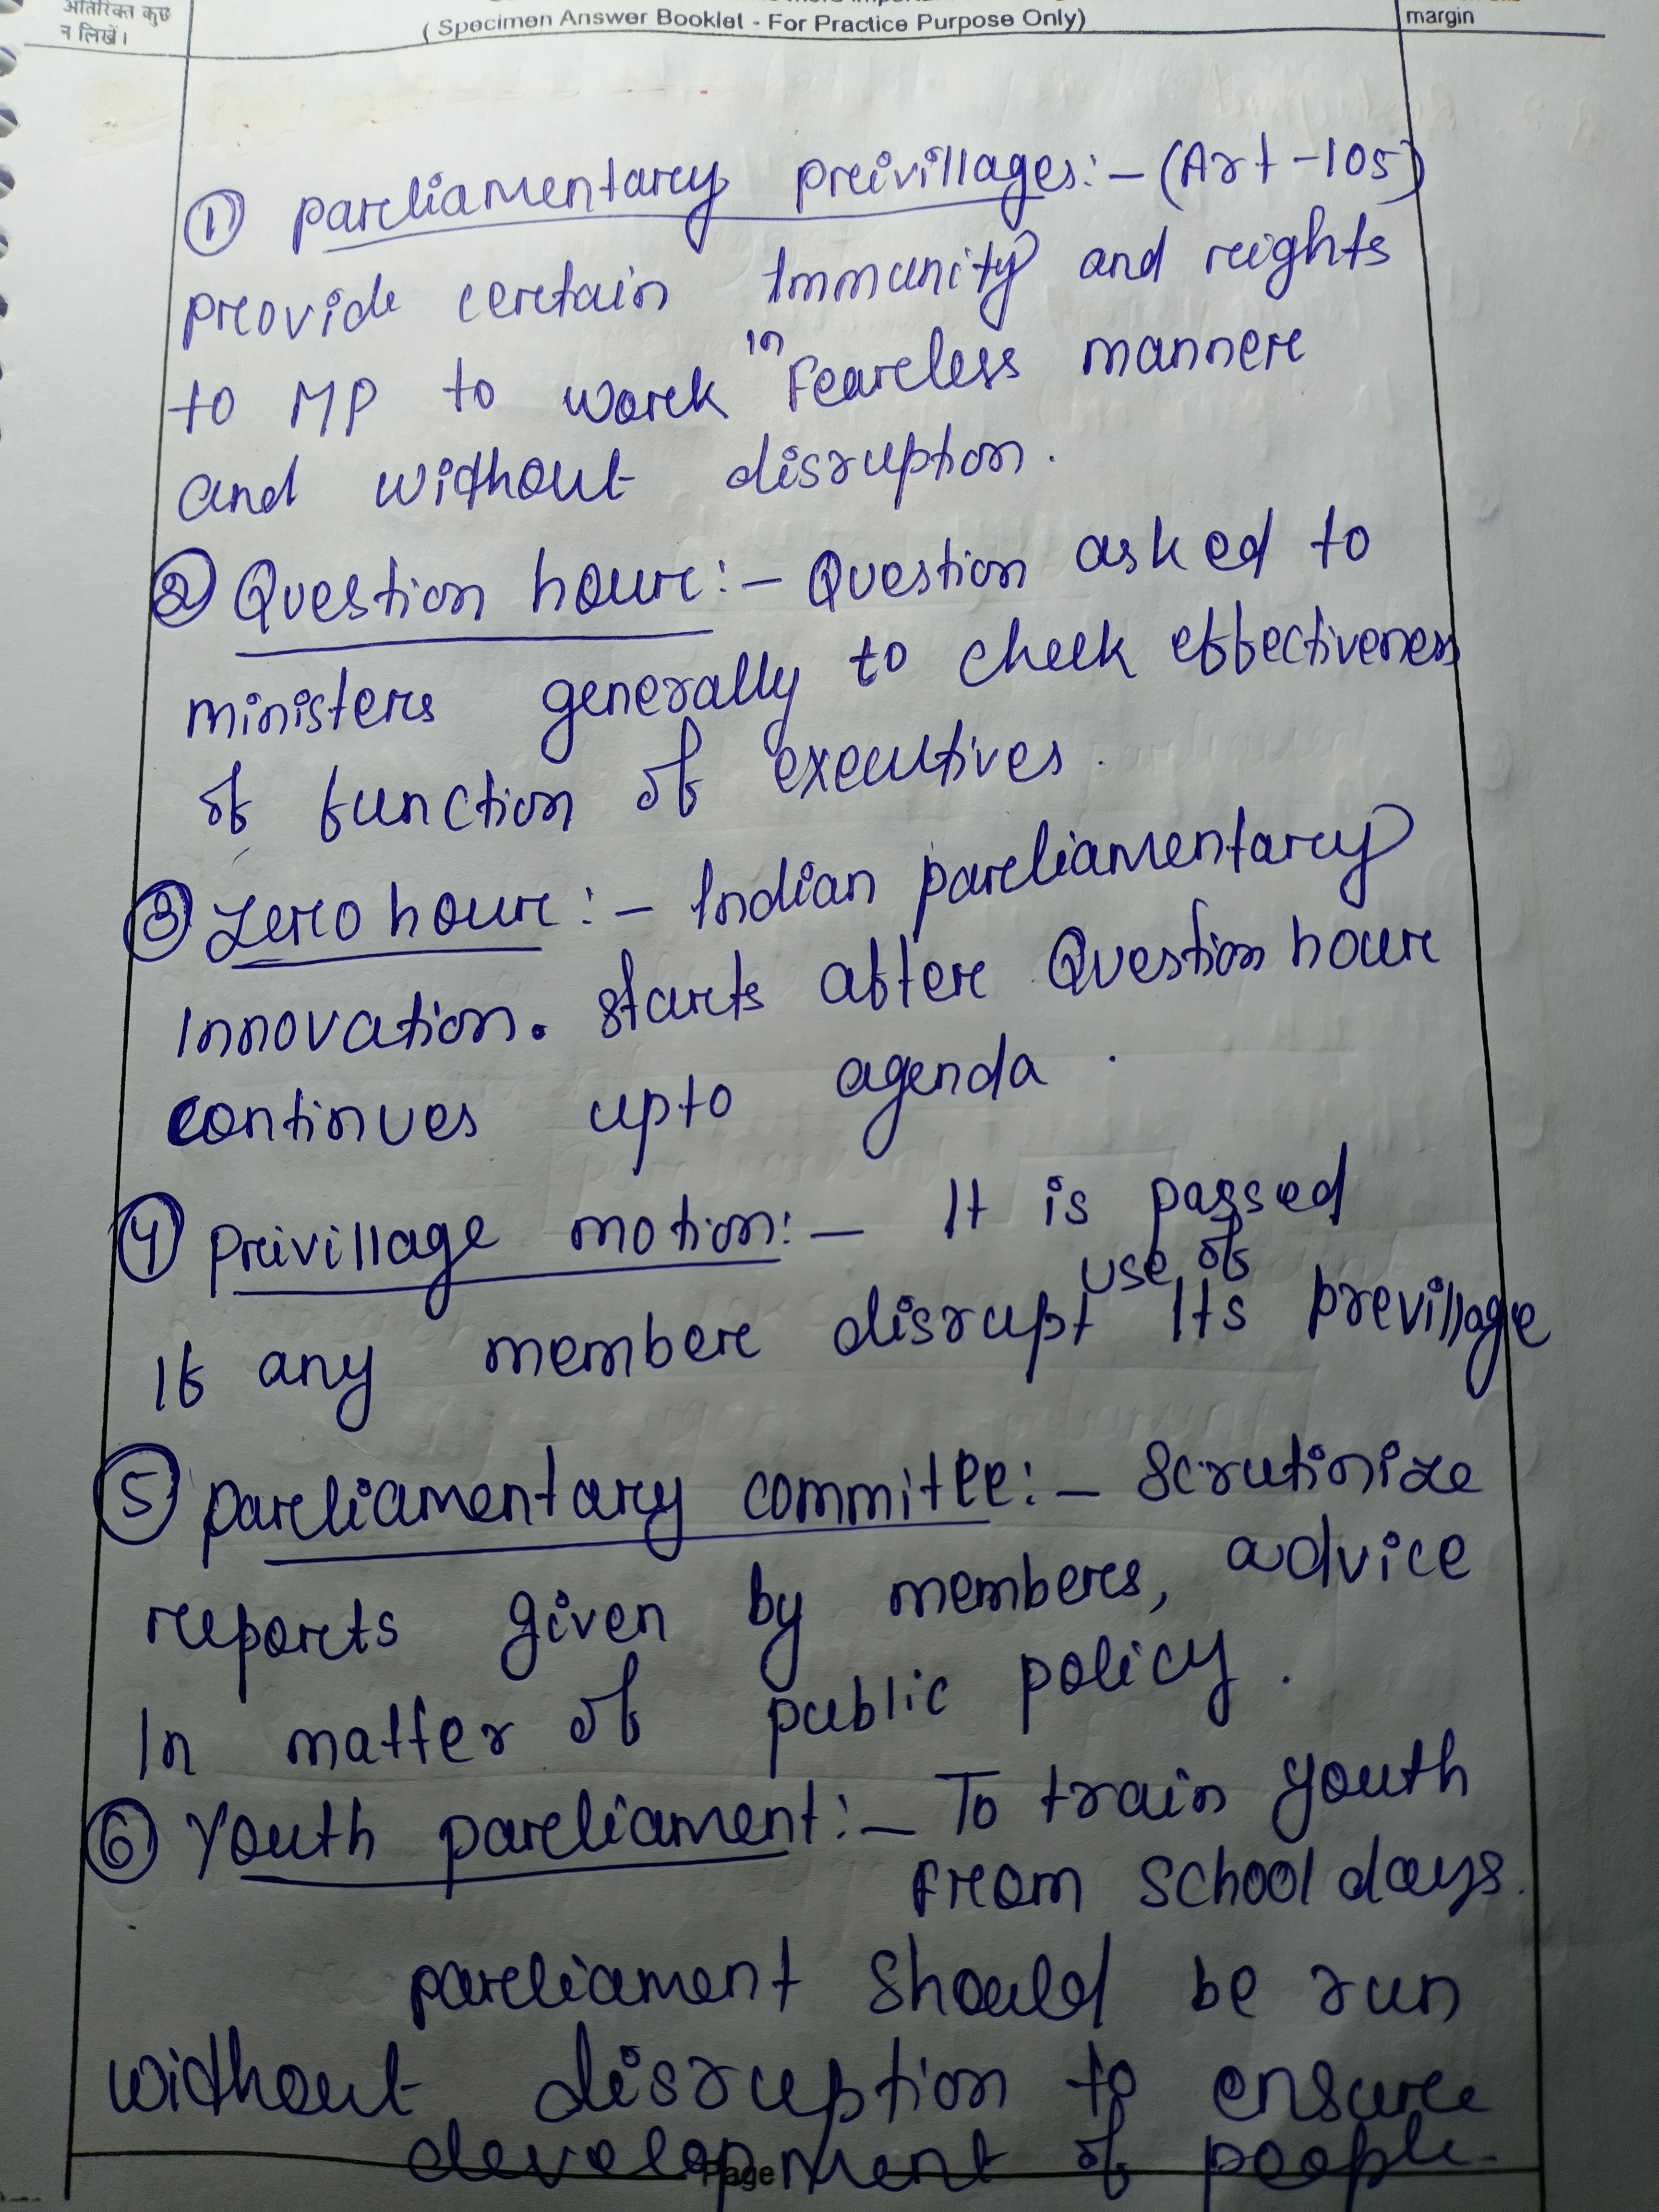 अतिरिक्त कुछ
न लिखें।
( Specimen Answer Booklet - For Practice Purpose Only)
margin
① parliamentary privillages:- (Art-105)
provide certain Immunity and rights
to MP to work in Fearless manner
and without disruption.
② Question hour:- Question asked to
ministers generally to check effectiveness
of function of executives.
③ Zero hour:- Indian parliamentary
Innovation. starts after Question hour
continues upto agenda.
④ privillage motion:- It is passed
If any member disrupt use of Its previllage
⑤ parliamentary committee:- Scrutinize
reports given by members, advice
In matter of public policy.
⑥ Youth parliament:- To train youth
From school days.
parliament should be run
without disruption to ensure
development of people.
Page